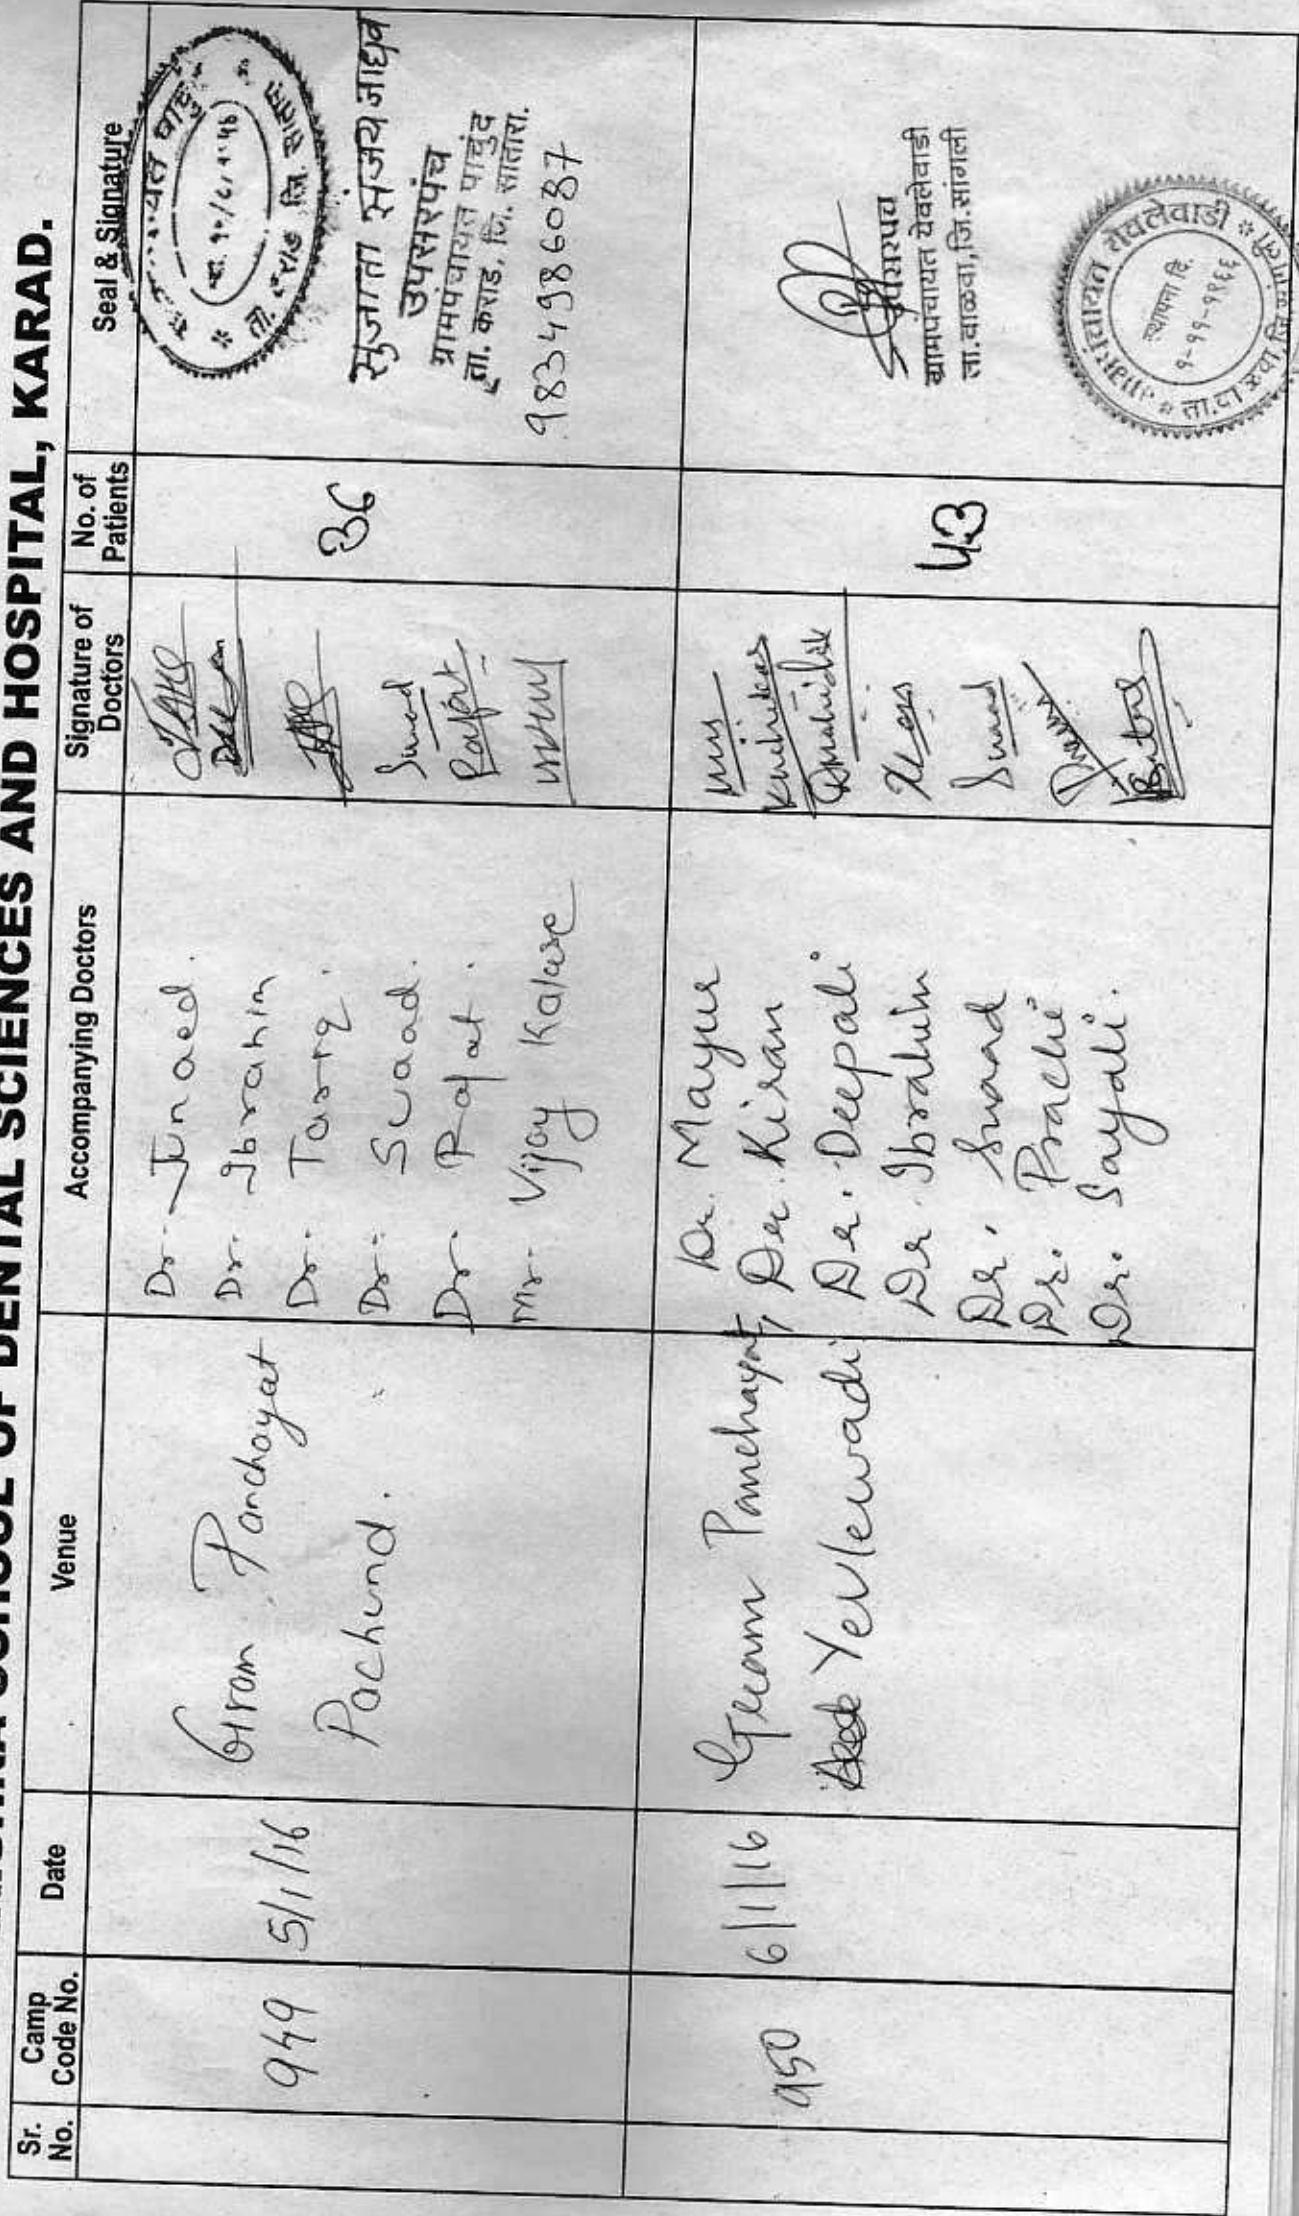 SCHOOL OF DENTAL SCIENCES AND HOSPITAL, KARAD.
Sr. No.
Camp Code No.
Date
Venue
Accompanying Doctors
Signature of Doctors
No. of Patients
Seal & Signature
949
5/1/16
Gram Panchayat
Pachund.
Dr. Junaed.
Dr. Ibrahim
Dr. Tariq.
Dr. Suaad.
Dr. Rafat.
Mr. Vijay Kalase
Suaad
Rafat
36
ता. कराड जि. सातारा
सुजाता संजय जाधव
उपसरपंच
ग्रामपंचायत पाचुंद
ता. कराड, जि. सातारा.
9834986087
950
6/1/16
Gram Panchayat,
Yevlewadi
Dr. Mayur
Dr. Kiran
Dr. Deepali
Dr. Ibrahim
Dr. Suaad
Dr. Prachi
Dr. Sayali.
Suaad
43
ग्रामपंचायत येवलेवाडी
ता.वाळवा,जि.सांगली
ग्रामपंचायत येवलेवाडी
स्थापना दि.
१-११-१९६६